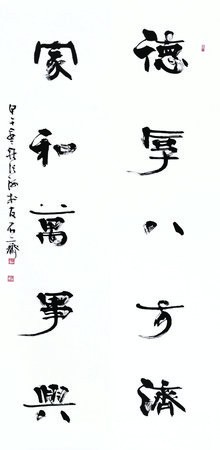 德厚八方濟
家和萬事興
甲午